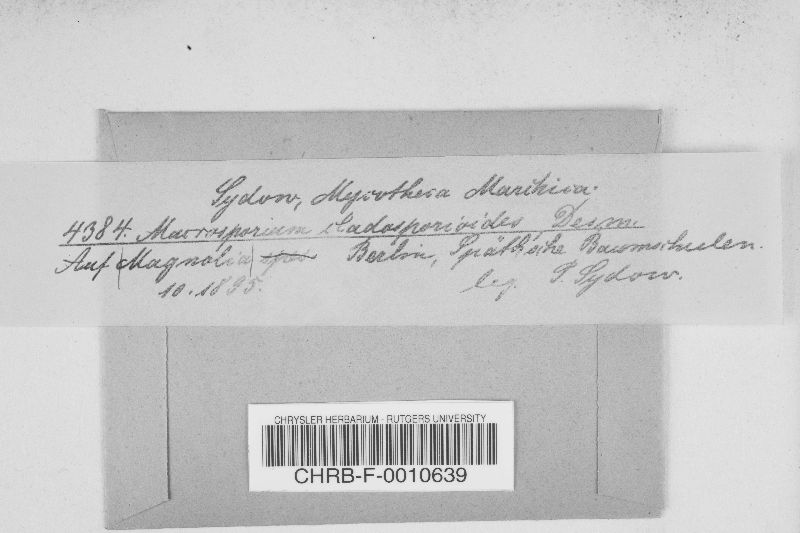 Sydow, Mycotheca Marchica.
4384. Macrosporium cladosporioides, Desm.
Auf Magnolia spec. Berlin, Späth'sche Baumschulen.
10.1895. leg. P. Sydow.
CHRYSLER HERBARIUM - RUTGERS UNIVERSITY
CHRB-F-0010639